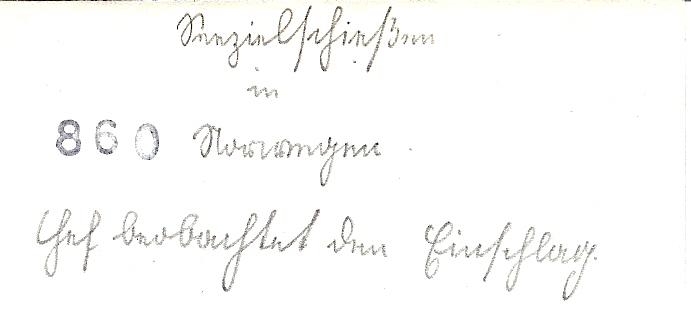 Seezielschießen
in
860 Norwegen
Chef beobachtet den Einschlag.